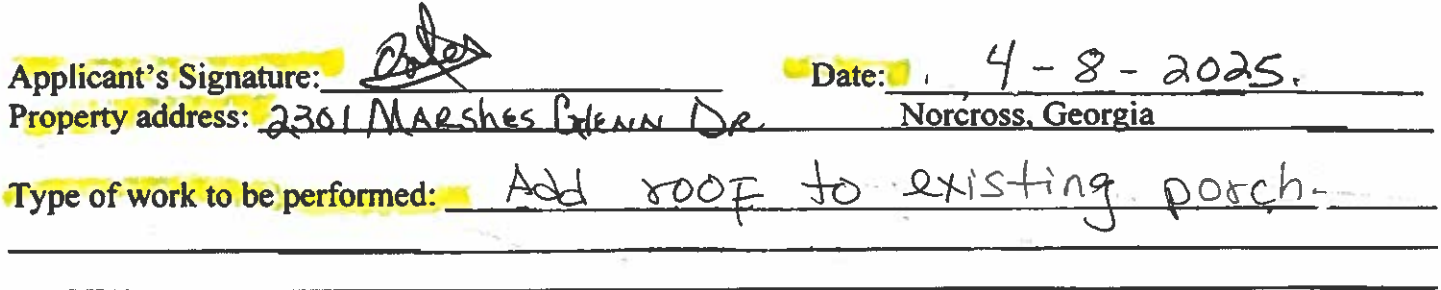 Applicant's Signature: Date: 4-8-2025.
Property address: 2301 Marshes Glenn Dr Norcross, Georgia
Type of work to be performed: Add roof to existing porch-